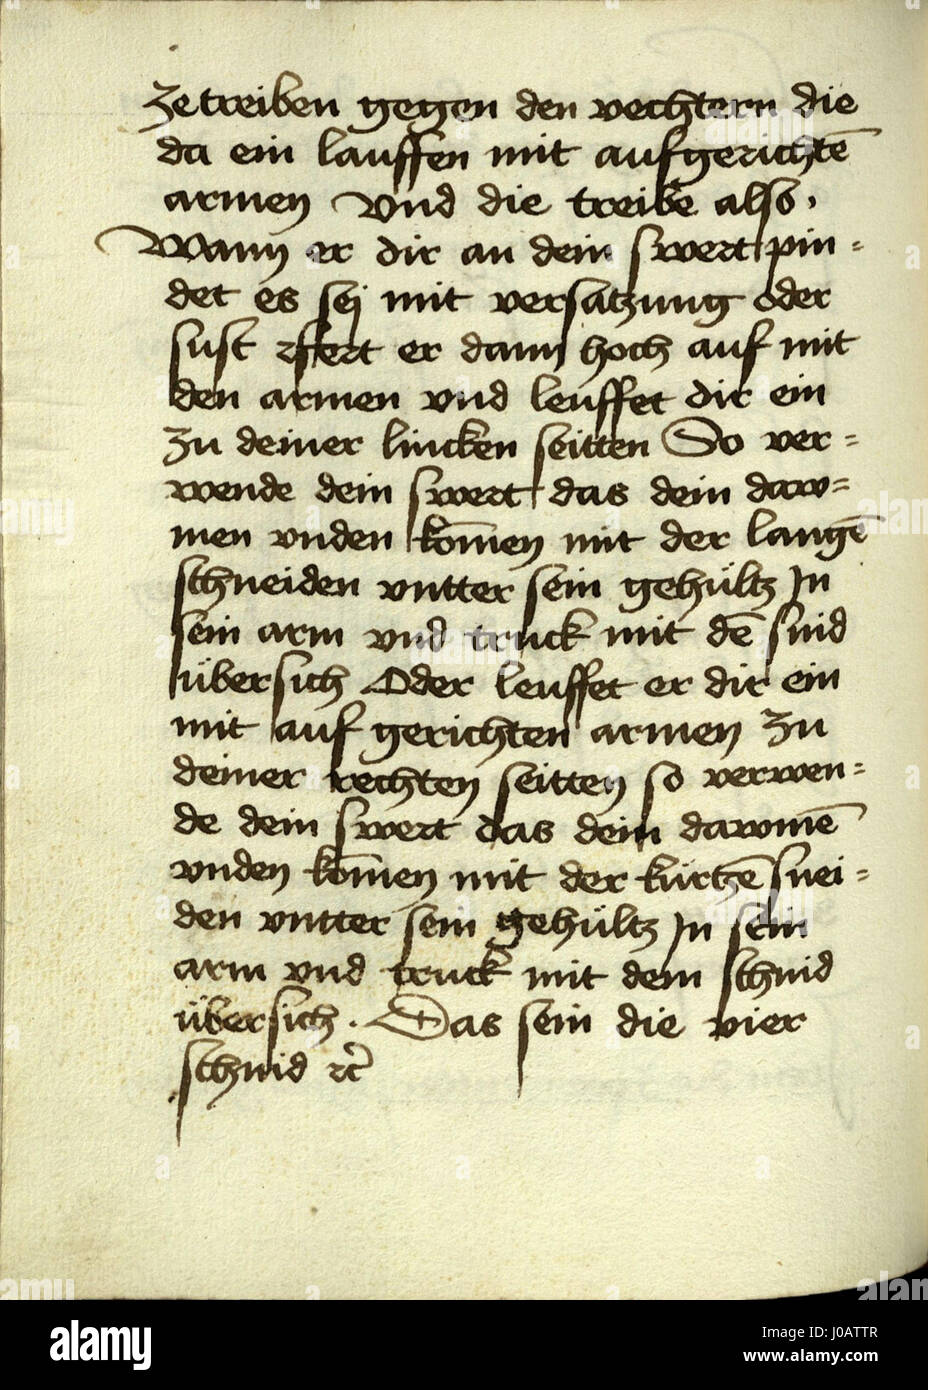 ze treiben gegen den vechtern die
da ein lauffen mit aufgerichtē
armen Vnd die treibe also ·
Wann er dir an dein swert pin=
det es sej mit versatzung oder
sust
er dann hoch auf mit
den armen vnd leuffet dir ein
zu deiner lincken seitten So ver=
wende dein swert das dein daw=
men vnden kōmen mit der langē
schneiden vntter sein gehültz Jn
sein arm vnd truck mit dē snid
übersich Oder leuffet er dir ein
mit auf gerichten armen zu
deiner rechten seitten so verwen=
de dein swert das dein dawmē
vnden kōmen mit der kurtzē snei=
den vntter sein gehültz Jn sein
arm vnd truck mit dem schnid
übersich · Das sein die vier
schnid
alamy
Image ID: J0ATTR
www.alamy.com